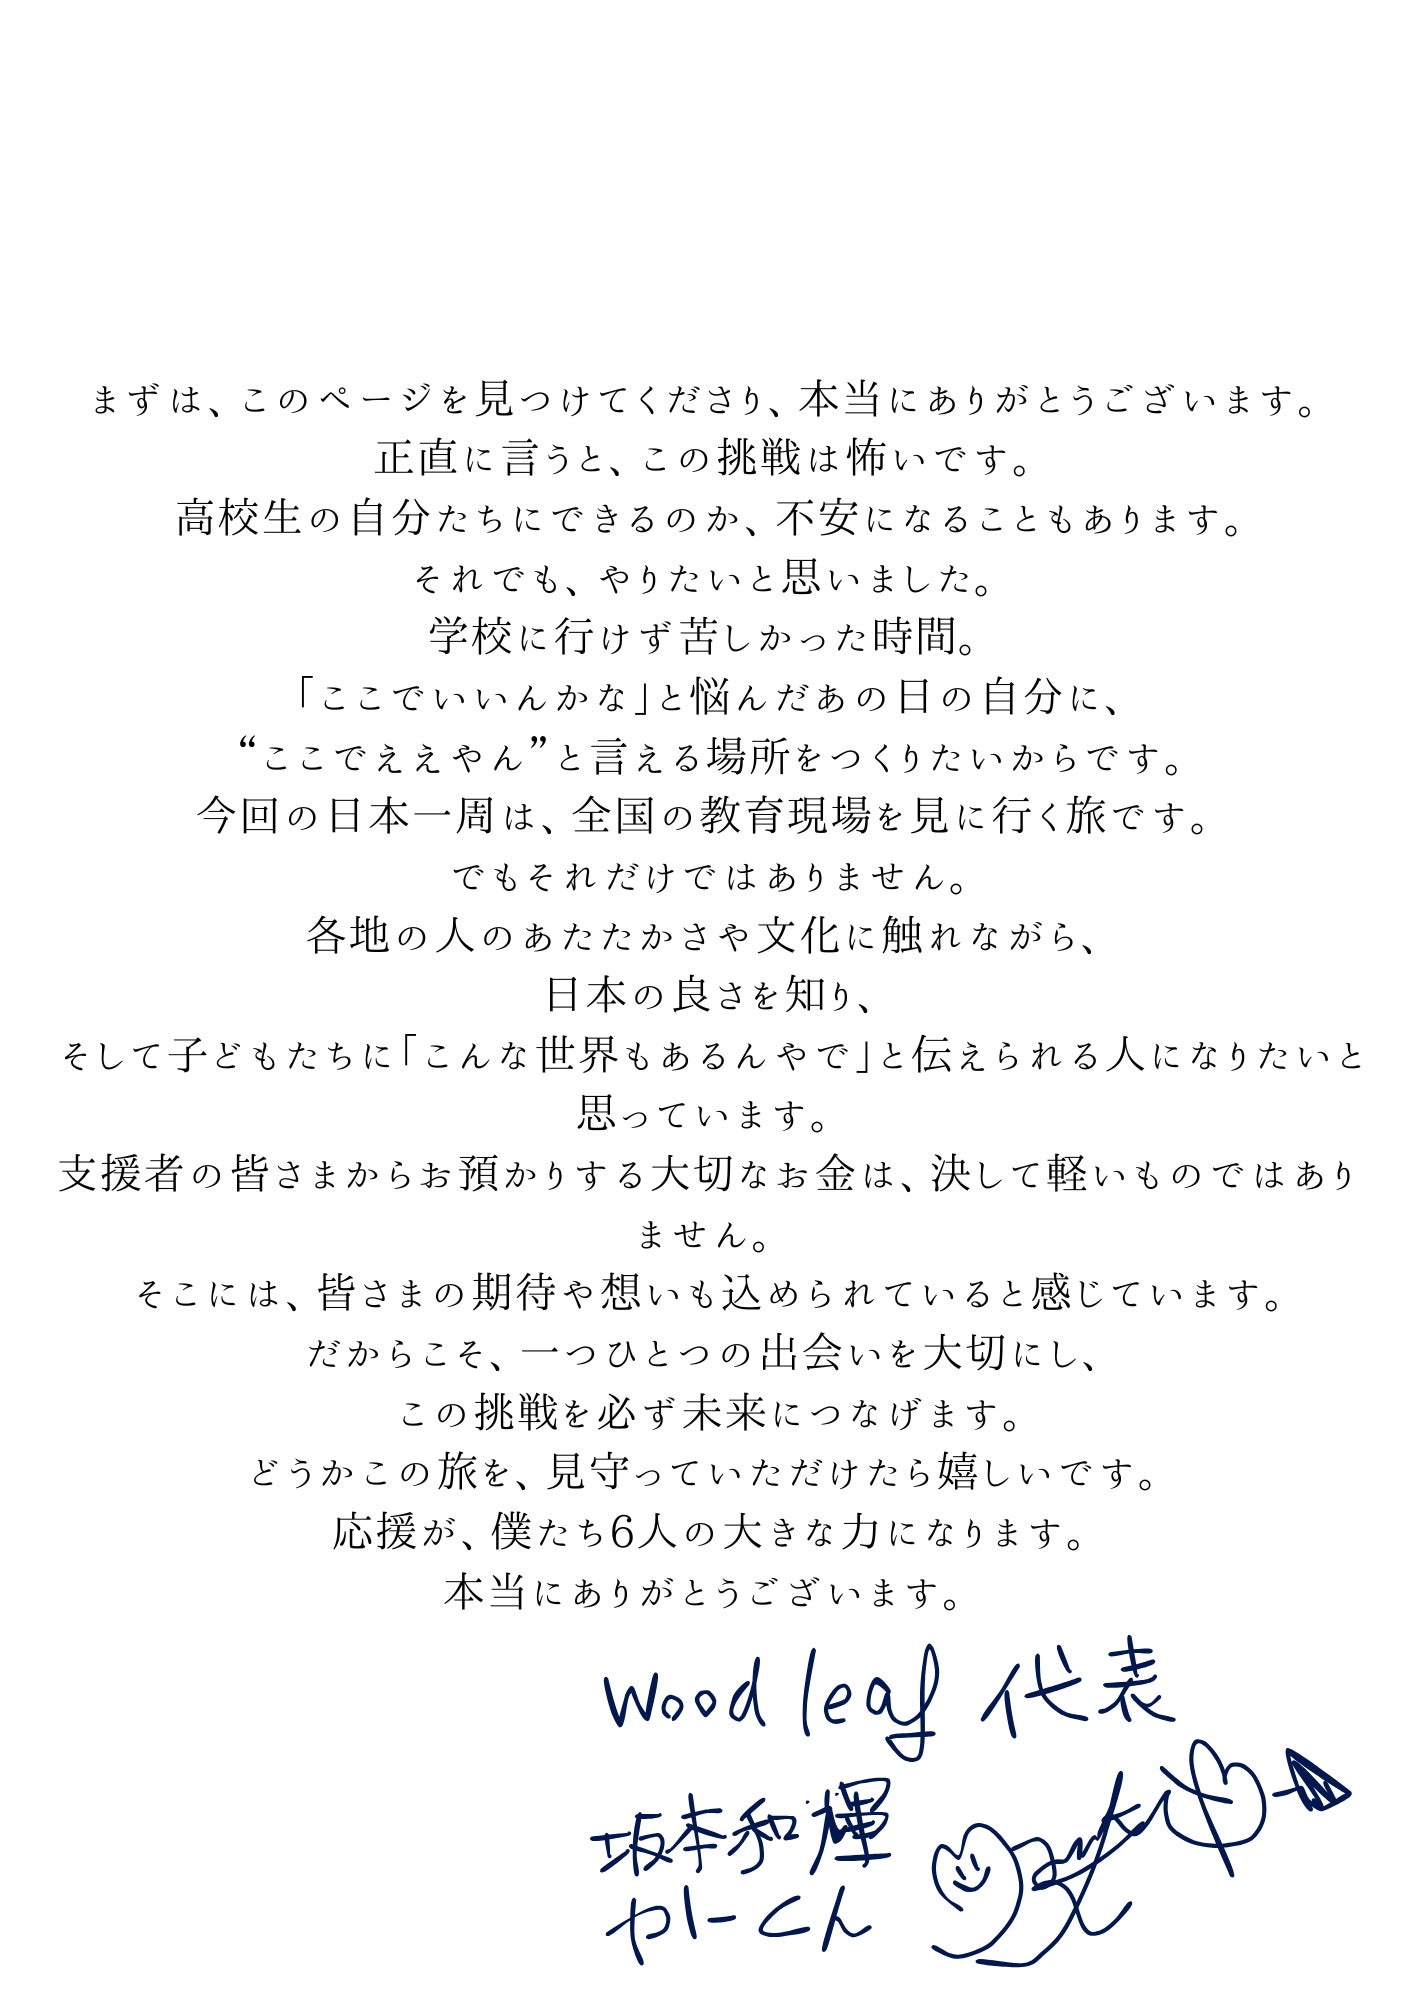 まずは、このページを見つけてくださり、本当にありがとうございます。
正直に言うと、この挑戦は怖いです。
高校生の自分たちにできるのか、不安になることもあります。
それでも、やりたいと思いました。
学校に行けず苦しかった時間。
「ここでいいんかな」と悩んだあの日の自分に、
“ここでええやん”と言える場所をつくりたいからです。
今回の日本一周は、全国の教育現場を見に行く旅です。
でもそれだけではありません。
各地の人のあたたかさや文化に触れながら、
日本の良さを知り、
そして子どもたちに「こんな世界もあるんやで」と伝えられる人になりたいと
思っています。
支援者の皆さまからお預かりする大切なお金は、決して軽いものではあり
ません。
そこには、皆さまの期待や想いも込められていると感じています。
だからこそ、一つひとつの出会いを大切にし、
この挑戦を必ず未来につなげます。
どうかこの旅を、見守っていただけたら嬉しいです。
応援が、僕たち6人の大きな力になります。
本当にありがとうございます。
wood leaf 代表
坂本和輝